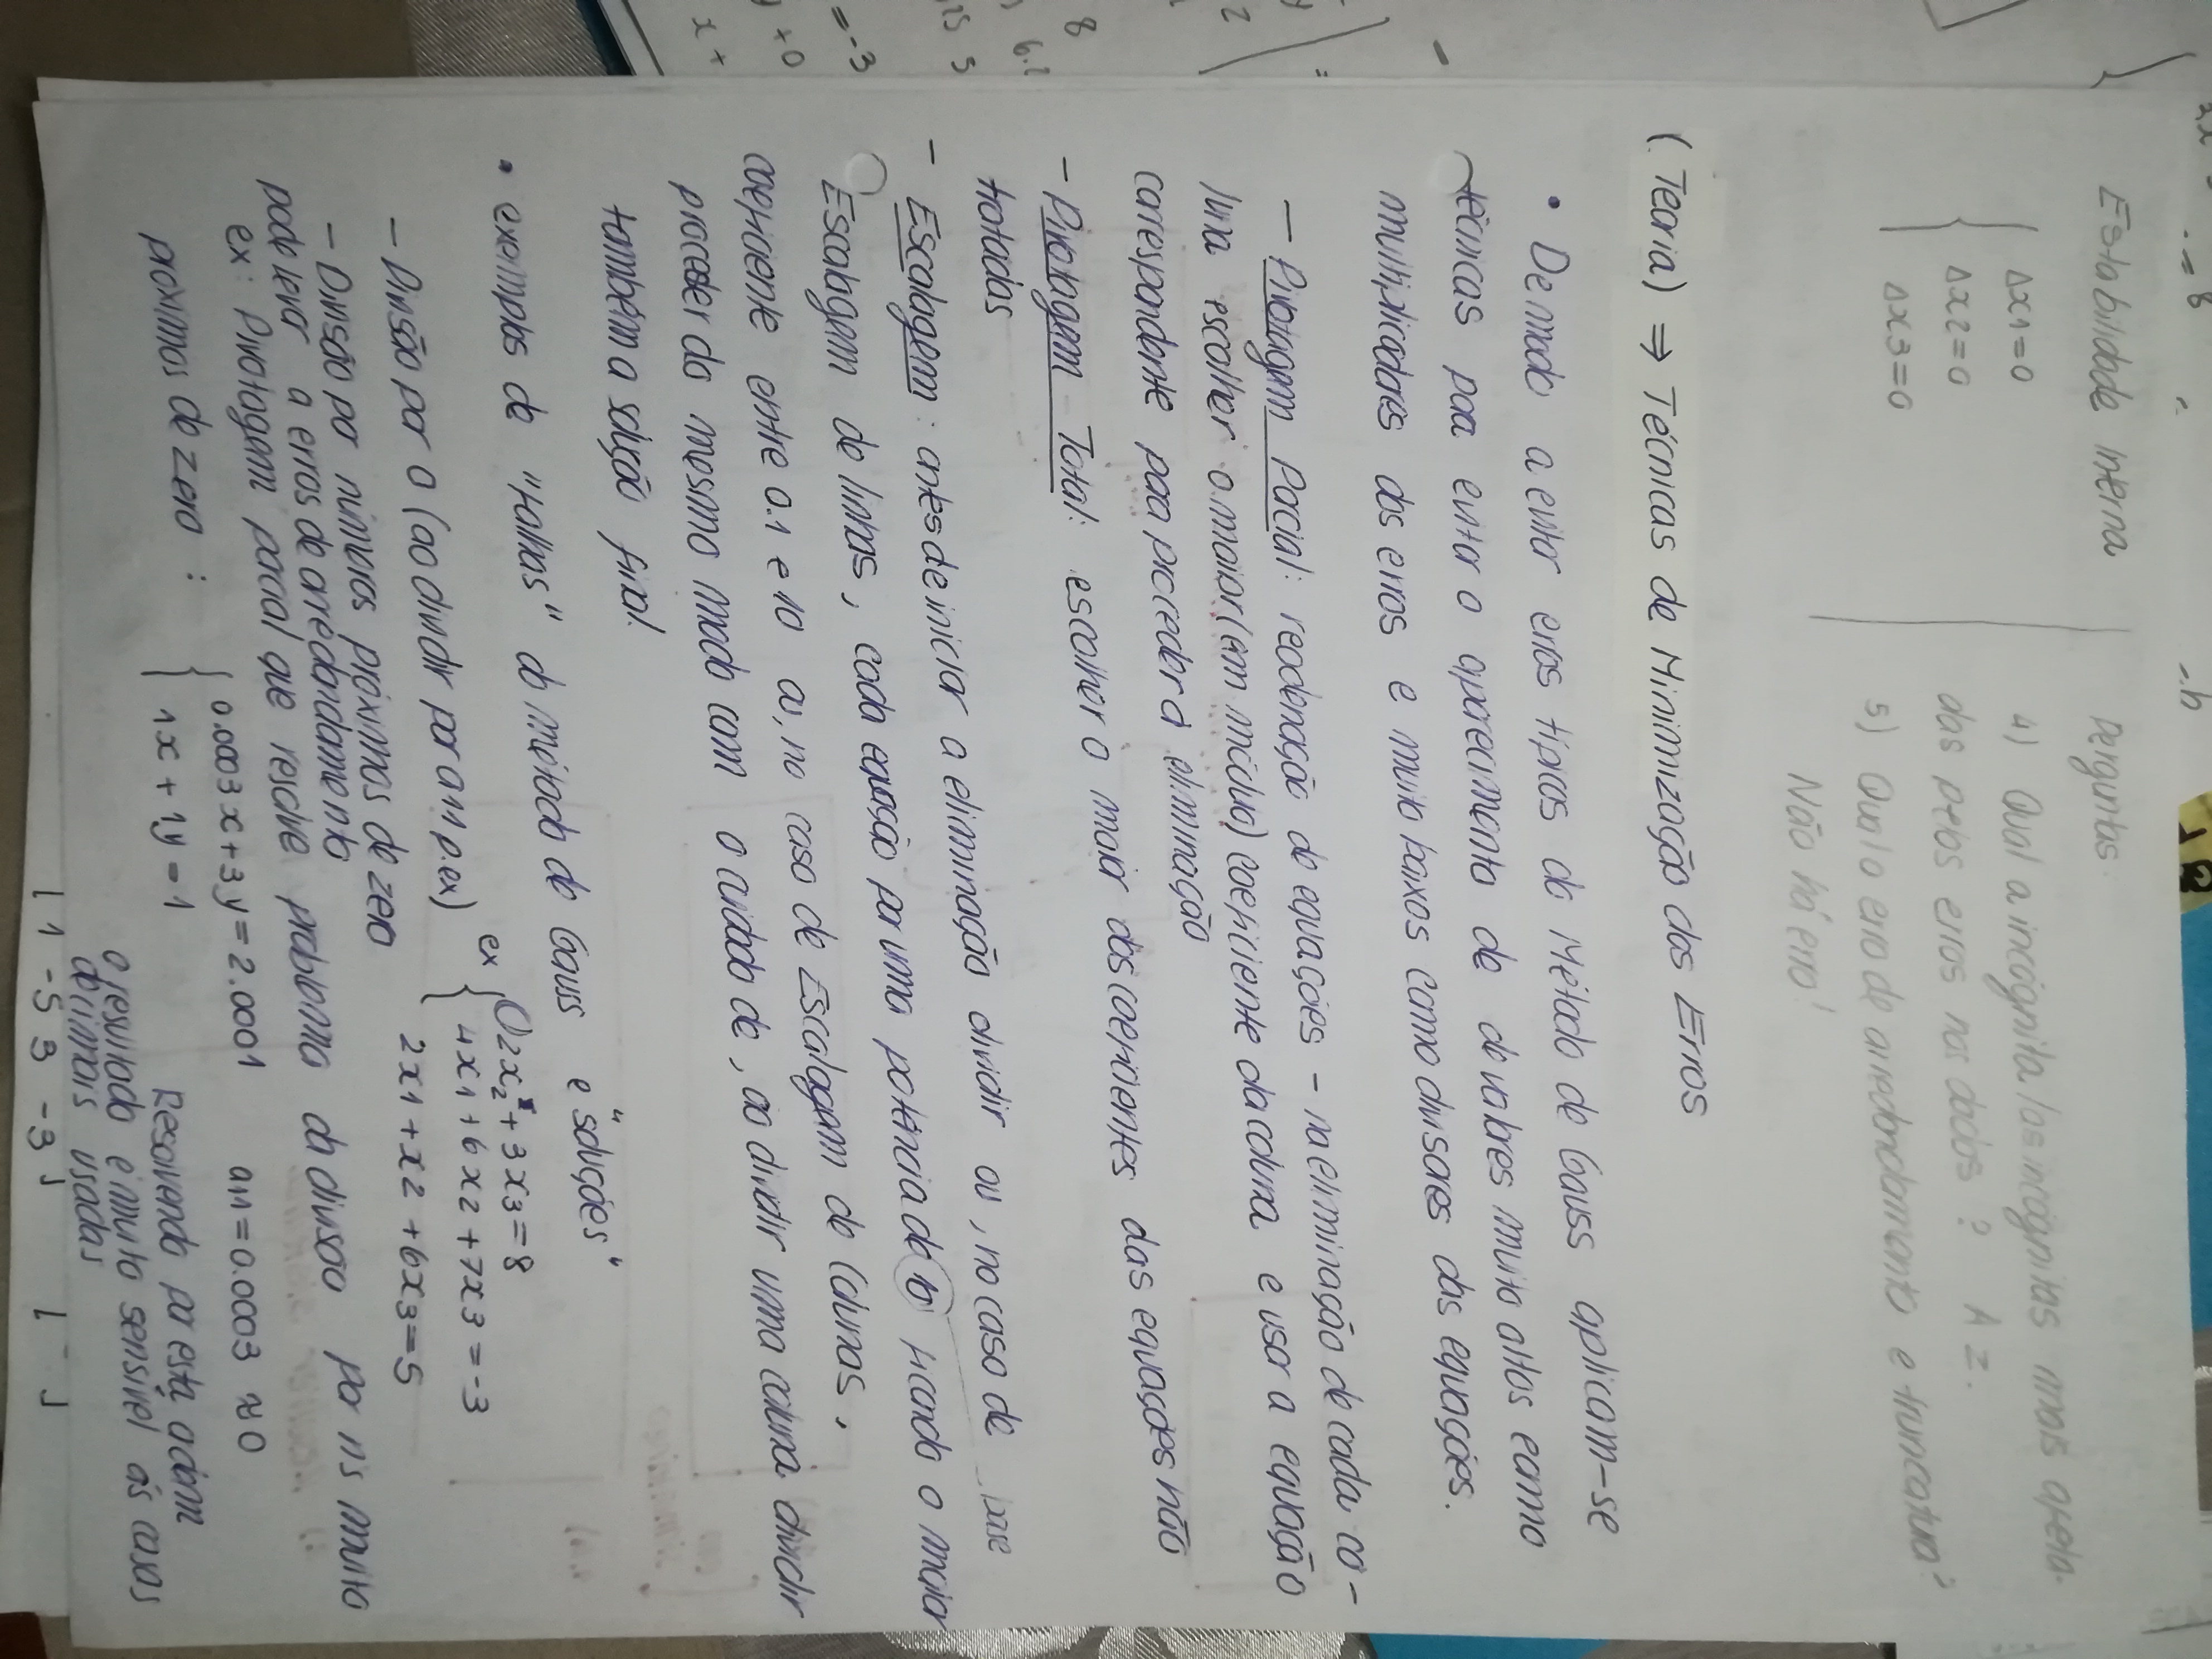 Estabilidade Interna
Δx1=0
Δx2=0
Δx3=0
Perguntas:
4) Qual a incógnita/as incógnitas mais afeta-
das pelos erros nos dados ? A z.
5) Qual o erro de arredondamento e truncatura?
Não há erro!
(Teoria) ⇒ Técnicas de Minimização dos Erros
• De modo a evitar erros típicos do Método de Gauss aplicam-se
técnicas para evitar o aparecimento de de valores muito altos como
multiplicadores dos erros e muito baixos como divisores das equações.
— Pivotagem Parcial: reodenação de equações - na eliminação de cada co-
luna escolher o maior (em móduo) coeficiente da coluna e usar a equação
correspondente para proceder à eliminação
- Pivotagem Total: escolher o maior dos coeficientes das equações não
tratadas
- Escalagem: antes de iniciar a eliminação dividir ou, no caso de base
Escalagem de linhas, cada equação por uma potência de 10 ficando o maior
coeficiente entre 0.1 e 10 ou, no caso de Escalagem de Colunas,
proceder do mesmo modo com o cuidado de, ao dividir uma coluna dividir
também a solução final.
• exemplos de "falhas" do método de Gauss e "soluções"
- Divisão por 0 (ao dividir por a11 p.ex) ex
02x2 + 3x3=8
4x1+6x2+7x3=-3
2x1+x2+6x3=5
- Divisão por números próximos de zero
pode levar a erros de arredondamento
ex: Pivotagem parcial que resolve problema da divisão por nºs muito
próximos de zero :
0.0003x+3y=2.0001
1x+1y=1
a11=0.0003 ≈0
Resolvendo por esta ordem
o resultado é muito sensível ás casas
decimais usadas
1 -5 3 -3
=8
8
=-3
+0
x+